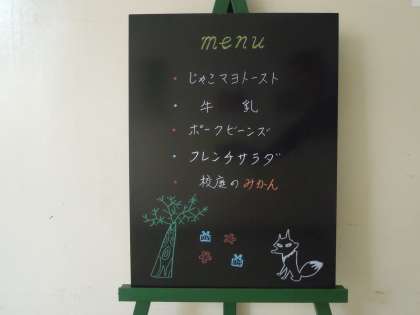 menu
・じゃこマヨトースト
・牛 乳
・ポークビーンズ
・フレンチサラダ
・校庭のみかん